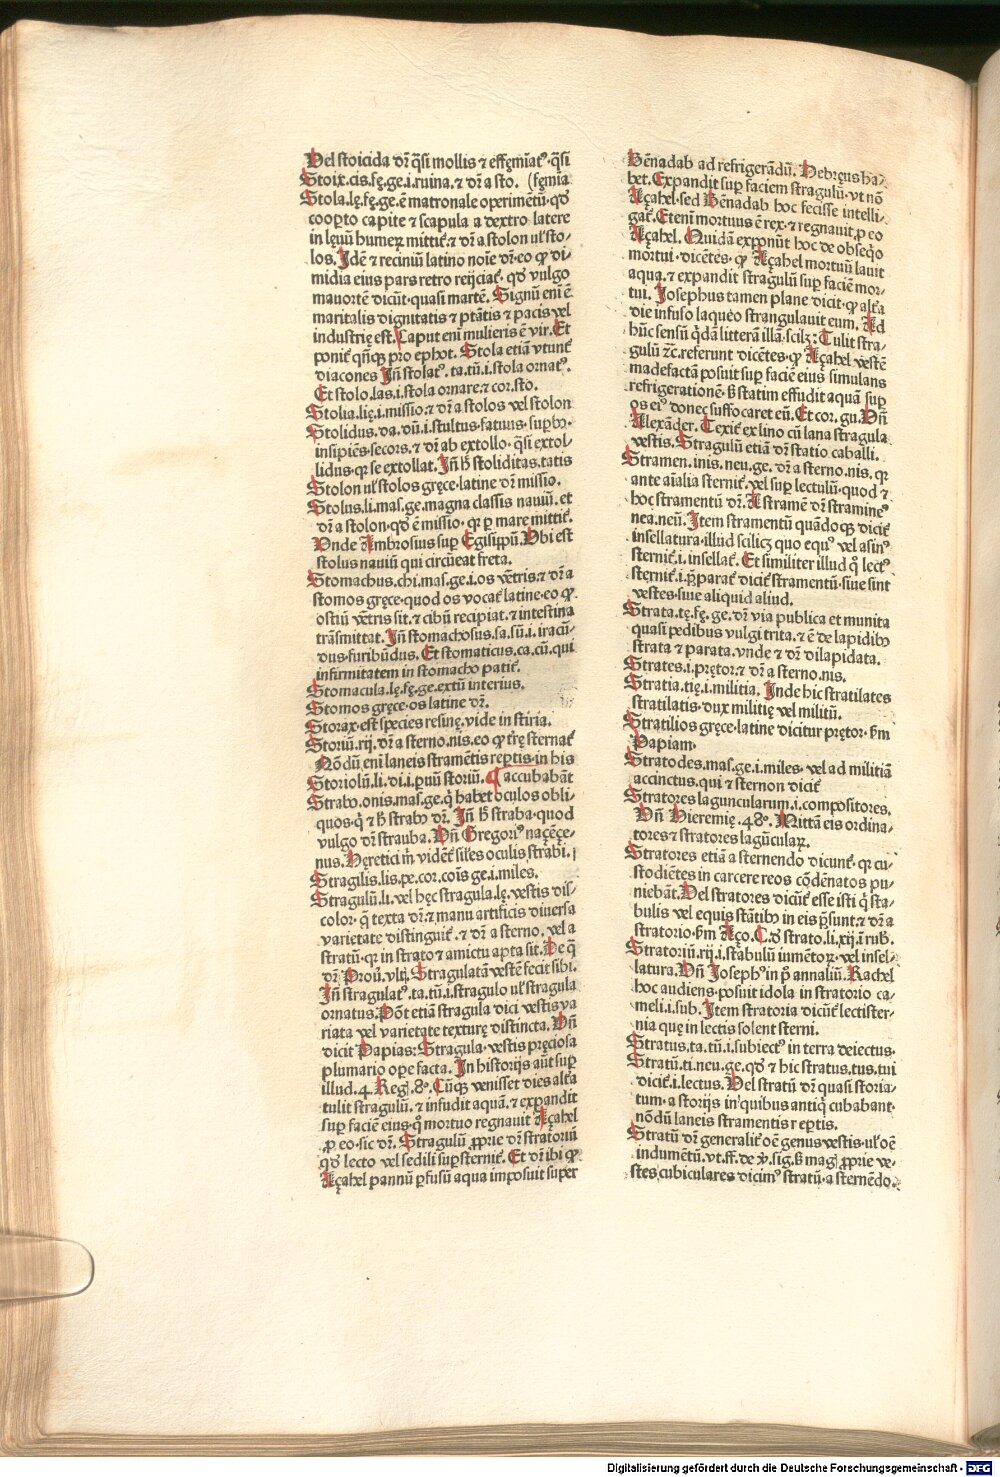 Uel stoicida dr̄ q̄si mollis ⁊ effęmīatꝰ. q̄si
Stoix.cis.fę.ge.i.ruina.⁊ dr̄ a sto. (fęmīa
Stola.lę.fę.ge.ē matronale operimētū. qd̛
cooꝑto capite ⁊ scapula a dextro latere
in lęuū humeꝝ mittit᷑.⁊ dr̄ a stolon ul̛ sto-
los. Idē ⁊ reciniū latino noīe dr̄.eo ꝙ di-
midia eius pars retro reijciat᷑. qd̛ vulgo
mauortē dicūt.quasi martē. Signū eni ē
maritalis dignitatis ⁊ ptātis ⁊ pacis vel
industrię est. Caput eni mulieris ē vir. Et
ponit᷑ qn̄qꝫ pro ephot. Stola etiā vtunt᷑
diacones Jn̄ stolatꝰ.ta.tū.i.stola ornatꝰ.
Et stolo.las.i.stola ornare.⁊ cor.sto.
Stolia.lię.i.missio.⁊ dr̄ a stolos vel stolon
Stolidus.da.dū.i.stultus.fatuus.suꝑbꝰ.
insipiēs.secors.⁊ dr̄ ab extollo. q̄si extol-
lidus.qꝛ se extollat. Jn̄ h̄ stoliditas.tatis
Stolon ul̛ stolos gręce.latine dr̄ missio.
Stolus.li.mas.ge.magna classis nauiū.et
dr̄ a stolon.qd̛ ē missio.qꝛ ꝑ mare mittit᷑.
Unde Ambrosius suꝑ Egisippū. Ubi est
stolus nauiū qui circūeat freta.
Stomachus.chi.mas.ge.i.os vētris.⁊ dr̄ a
stomos gręce.quod os vocat᷑ latine.eo ꝙ
ostiū vētris sit.⁊ cibū recipiat.⁊ intestina
trāsmittat. Jn̄ stomachosus.sa.sū.i.iracū-
dus.furibūdus. Et stomaticus.ca.cū.qui
infirmitatem in stomacho patit᷑.
Stomacula.lę.fę.ge.extū interius.
Stomos gręce.os latine dr̄.
Storax.est species resinę.vide in stiria.
Storiū.rij.dr̄ a sterno.nis.eo ꝙ tr̄ę sternat᷑
Nōdū eni laneis stramētis reptis.in his
Storiolū.li.di.i.ꝑuū storiū. ¶ accubabāt
Strabo.onis.mas.ge.q̇ habet oculos obli-
quos.q̇ ⁊ h̄ strabꝰ dr̄. Jn̄ h̄ straba.quod
vulgo dr̄ strauba. Un̄ Gregoriꝰ naçęçe-
nus. Hęretici m̄ vidēt᷑ siles oculis strabi.
Stragilis.lis.pe.cor.cōis ge.i.miles.
Stragulū.li.vel hęc stragula.lę.vestis dis-
color.q̄ texta dr̄.⁊ manu artificis diuersa
varietate distinguit᷑.⁊ dr̄ a sterno. vel a
stratū.qꝛ in strato ⁊ amictu apta sit. De q̄
dr̄ Prou. vltj. Stragulatā vestē fecit sibi.
Jn̄ stragulatꝰ.ta.tū.i.stragulo ul̛ stragula
ornatus. Pōt etiā stragula dici vestis va
riata vel varietate texturę distincta. Un̄
dicit Papias: Stragula.vestis pręciosa
plumario oꝑe facta. In historijs aūt suꝑ
illud.4.Reg.8°. Cūqꝫ venisset dies altā
tulit stragulū.⁊ infudit aquā.⁊ expandit
suꝑ faciē eius.q̊ mortuo regnauit Açahel
ꝓ eo.sic dr̄. Stragulū ꝓprie dr̄ stratoriū
qd̛ lecto vel sedili suꝑsternit᷑. Et dr̄ ibi ꝙ
Açahel pannū ꝑfusū aqua imposuit super
Benadab ad refrigerādū. Hebręus ha-
bet. Expandit suꝑ faciem stragulū.vt nō
Açahel.sed Bēnadab hoc fecisse intelli-
gat᷑. Eteni mortuus ē rex.⁊ regnauit ꝑ eo
Açahel. Quidā exponūt hoc de obseqo
mortui.dicētes.ꝙ Açahel mortuū lauit
aqua.⁊ expandit stragulū suꝑ faciē mor-
tui. Josephus tamen plane dicit.ꝙ altā
die infuso laqueo strangulauit eum. Ad
hūc sensū q̇dā litterā illā.scilꝫ: Tulit stra-
gulū ⁊c.referunt dicētes.ꝙ Açahel vestē
madefactā posuit suꝑ faciē eius simulans
refrigerationē.⁊ statim effudit aquā suꝑ
os eiꝰ donec suffocaret eū. Et cor.gu. Un̄
Alexāder. Texit᷑ ex lino cū lana stragula
vestis. Stragulū etiā dr̄ statio caballi.
Stramen.inis.neu.ge.dr̄ a sterno.nis.qꝛ
ante aīalia sternit᷑.vel suꝑ lectulū.quod ⁊
hoc stramentū dr̄. A stramē dr̄ straminꝰ
nea.neū. Item stramentū quādoqꝫ dicit᷑
insellatura.illud scilicꝫ quo equꝰ vel asinꝰ
sternit᷑.i.insellat᷑. Et similiter illud q̊ lectꝰ
sternit᷑.i.p̄parat᷑ dicit᷑ stramentū.siue sint
vestes.siue aliquid aliud.
Strata.tę.fę.ge.dr̄ via publica et munita
quasi pedibus vulgi trita.⁊ ē de lapidibꝰ
strata ⁊ parata.vnde ⁊ dr̄ dilapidata.
Strates.i.prętor.⁊ dr̄ a sterno.nis.
Stratia.tię.i.militia. Inde hic stratilates
stratilatis.dux militię vel militū.
Stratilios gręce.latine dicitur prętor.ẜm
Papiam.
Stratodes.mas.ge.i.miles.vel ad militiā
accinctus.qui ⁊ sternon dicit᷑
Stratores laguncularum.i.compositores.
Un̄ Hieremię.48°. Mittā eis ordina-
tores ⁊ stratores lagūculaꝝ.
Stratores etiā a sternendo dicunt᷑.qꝛ cu-
stodiētes in carcere reos cōdēnatos pu-
niebāt. Uel stratores dicūt᷑ esse isti q̇ sta-
bulis vel equis stātibꝰ in eis p̄sunt.⁊ dr̄ a
stratorio.ẜm Aço. C. d̛ strato.li.xij.ī rub.
Stratoriū.rij.i.stabulū iumētoꝝ.vel insel-
latura. Un̄ Josephꝰ in p̊ annaliū. Rachel
hoc audiens.posuit idola in stratorio ca-
meli.i.sub. Item stratoria dicūt᷑ lectister-
nia quę in lectis solent sterni.
Stratus.ta.tū.i.subiectꝰ in terra deiectus.
Stratū.ti.neu.ge.qd̛ ⁊ hic stratus.tus.tui
dicit᷑.i.lectus. Uel stratū dr̄ quasi storia-
tum.a storijs in quibus antiq̇ cubabant.
nōdū laneis stramentis reptis.
Stratū dr̄ generalit᷑ oē genus vestis.ul̛ oē
indumētū.vt.ff.de v̊.sig.ẜ mag̊ ꝓprie ve-
stes cubiculares dicimꝰ stratū.a sternēdo.
Digitalisierung gefördert durch die Deutsche Forschungsgemeinschaft - DFG